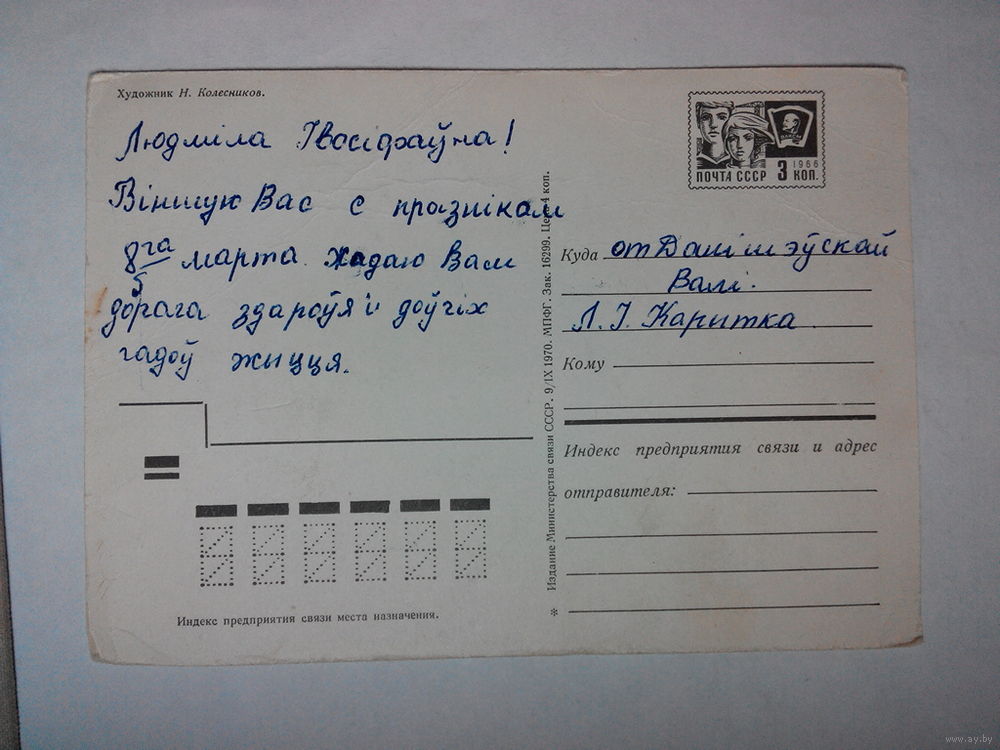 Художник Н. Колесников.
Людміла Івосіфаўна!
Віншую Вас с празнікам
8га марта. Жадаю Вам
дорага здароўя і доўгіх
гадоў жыцця.
Индекс предприятия связи места назначения.
Издание Министерства связи СССР. 9/IX 1970. МПФГ. Зак. 16299. Цена 4 коп.
ПОЧТА СССР 3 КОП.
1966
Куда от
Валі.
Л. І. Карытка
Кому
Индекс предприятия связи и адрес
отправителя:
www.ay.by